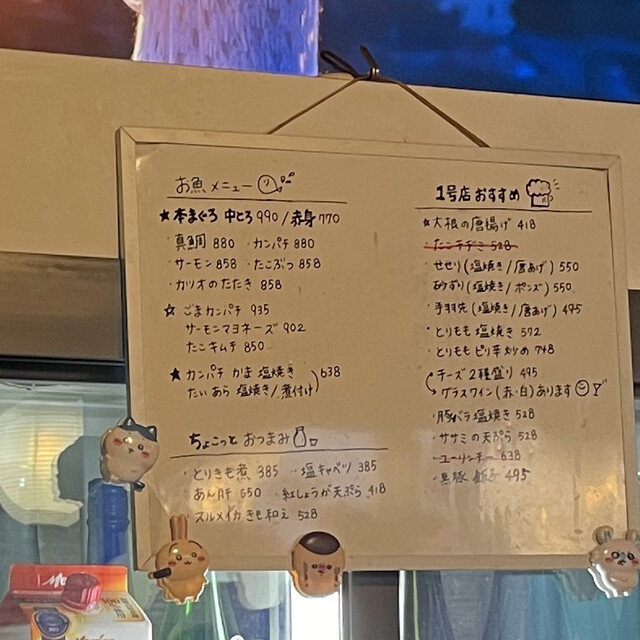 お魚メニュー
★本まぐろ 中とろ 990/赤身 770
・真鯛 880 ・カンパチ 880
・サーモン 858 ・たこぶつ 858
・カツオのたたき 858
☆ごまカンパチ 935
サーモンマヨネーズ 902
たこキムチ 850
★カンパチ かま 塩焼き
たい あら 塩焼き/煮付け 638
ちょこっと おつまみ
・とりきも煮 385 ・塩キャベツ 385
あん肝 550 ・紅しょうが天ぷら 418
・スルメイカ きも和え 528
1号店 おすすめ
☆大根の唐揚げ 418
・たこチヂミ 528
・せせり(塩焼き/唐あげ) 550
・砂ずり(塩焼き/ポンズ) 550
・手羽先(塩焼き/唐あげ) 495
・とりもも 塩焼き 572
・とりもも ピリ辛炒め 748
・チーズ2種盛り 495
グラスワイン(赤・白)あります
・豚バラ塩焼き 528
・ササミの天ぷら 528
・ユーリンチー 638
・黒豚 餃子 495